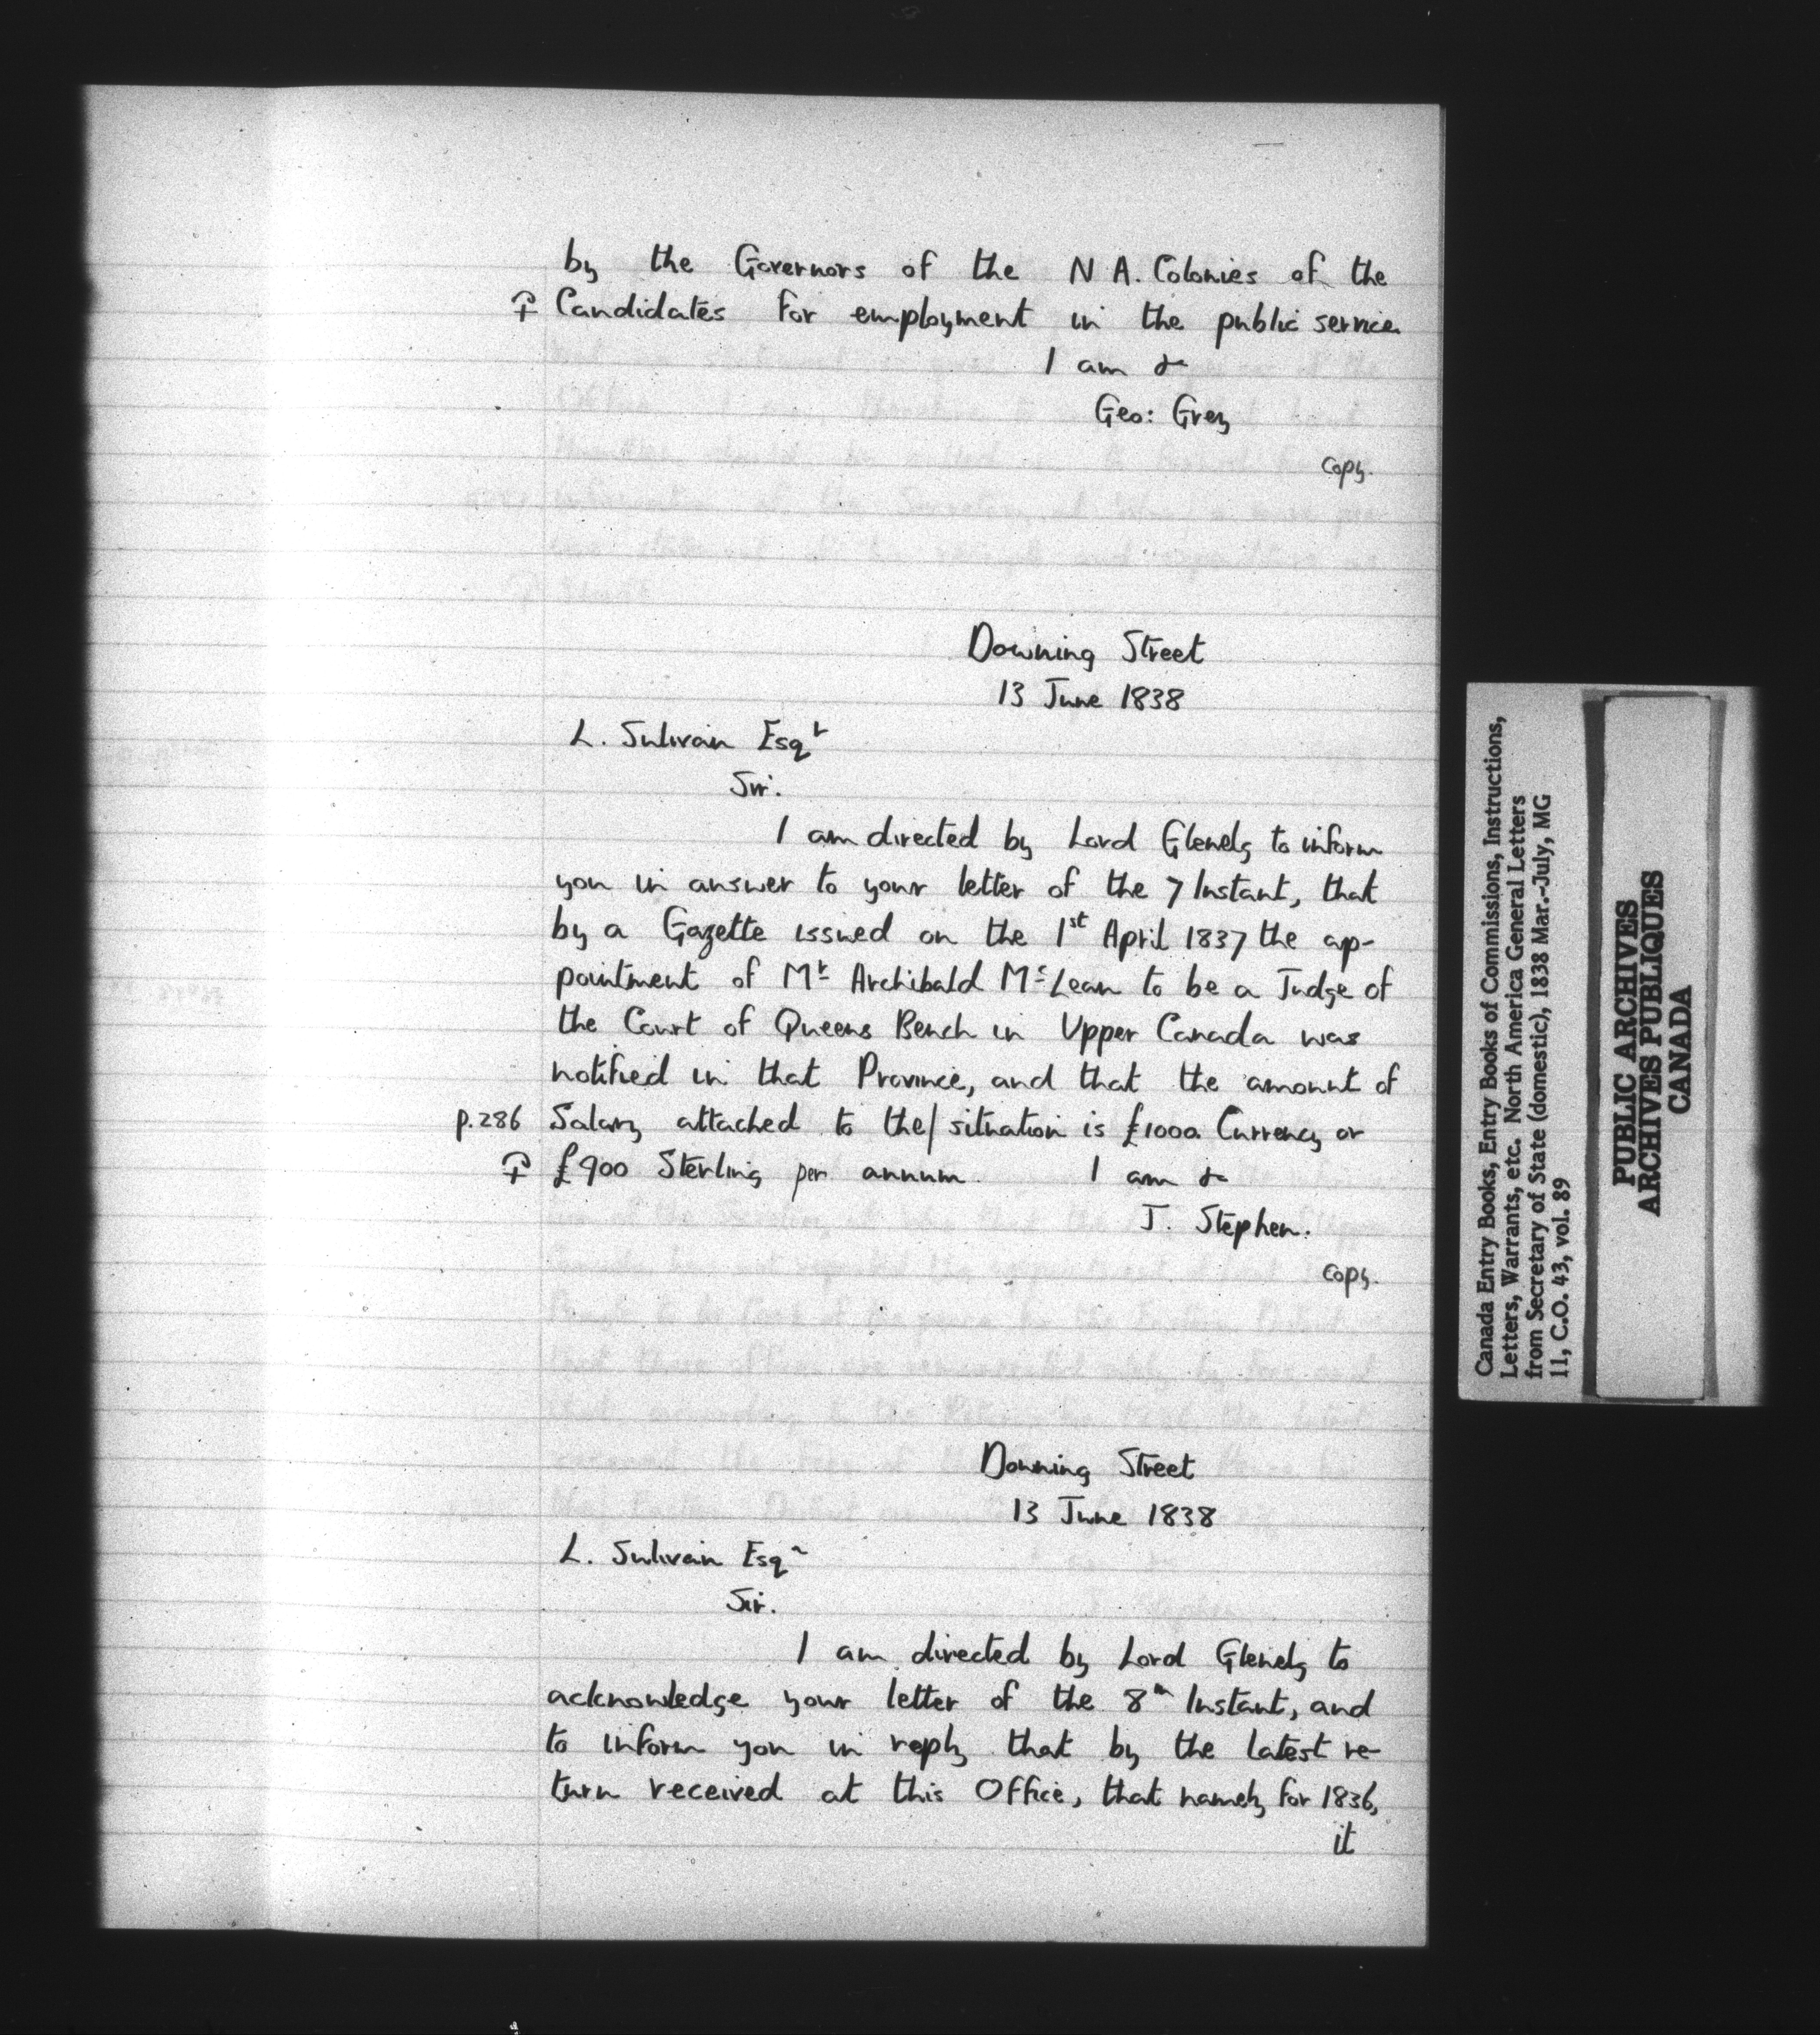 by the Governors of the N A. Colonies of the
Candidates for employment in the public service
I am &
Geo: Grey
copy.
Downing Street
13 June 1838
L. Sulivan Esqr
Sir.
I am directed by Lord Glenelg to inform
you in answer to your letter of the 7 Instant, that
by a Gazette issued on the 1st April 1837 the ap-
pointment of Mr Archibald McLean to be a Judge of
the Court of Queens Bench in Upper Canada was
notified in that Province, and that the amount of
p.286 Salary attached to the/ situation is £1000 Currency or
£900 Sterling per annum. I am &
J. Stephen.
copy.
Downing Street
13 June 1838
L. Sulivan Esqr
Sir.
I am directed by Lord Glenelg to
acknowledge your letter of the 8th Instant, and
to inform you in reply that by the latest re-
turn received at this Office, that namely for 1836,
it
Canada Entry Books, Entry Books of Commissions, Instructions,
Letters, Warrants, etc. North America General Letters
from Secretary of State (domestic), 1838 Mar.-July, MG
11, C.O. 43, vol. 89
PUBLIC ARCHIVES
ARCHIVES PUBLIQUES
CANADA